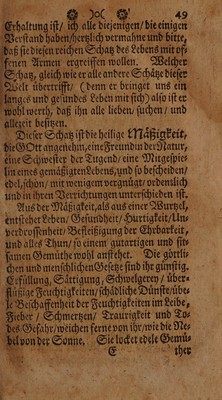 49
Erhaltung ist/ ich alle diejenigen/ die einigen
Verstand haben/hertzlich vermahne und bitte,
daß sie diesen reichen Schatz des Lebens mit of-
fenen Armen ergreiffen wollen. Welcher
Schatz, gleich wie er alle andere Schätze dieser
Welt übertrifft/ (denn er bringet uns ein
langes und gesundes Leben mit sich) also ist er
wohl werth, daß ihn alle lieben, suchen/ und
allezeit besitzen.
Dieser Schatz ist die heilige Mäßigkeit,
die GOtt angenehm, eine Freundin der Natur,
eine Schwester der Tugend/ eine Mitgespie-
lin eines gemäßigten Lebens, und so bescheiden/
edel, schön/ mit wenigem vergnügt/ ordentlich
und in ihren Verrichtungen unterschieden ist.
Aus der Mäßigkeit, als aus einer Wurtzel,
entstehet Leben/ Gesundheit/ Hurtigkeit/ Un-
verdrossenheit/ Befleißigung der Ehrbarkeit,
und alles Thun/ so einem gutartigen und sitt-
samen Gemüthe wohl anstehet. Die göttli-
chen und menschlichen Gesetze sind ihr günstig.
Erfüllung, Sättigung, Schwelgerey/ über-
flüßige Feuchtigkeiten/ schädliche Dünste/ übe-
le Beschaffenheit der Feuchtigkeiten im Leibe,
Fieber/ Schmertzen/ Traurigkeit und To-
des-Gefahr/ weichen ferne von ihr/ wie die Ne-
bel von der Sonne. Sie locket edele Gemü-
E ther